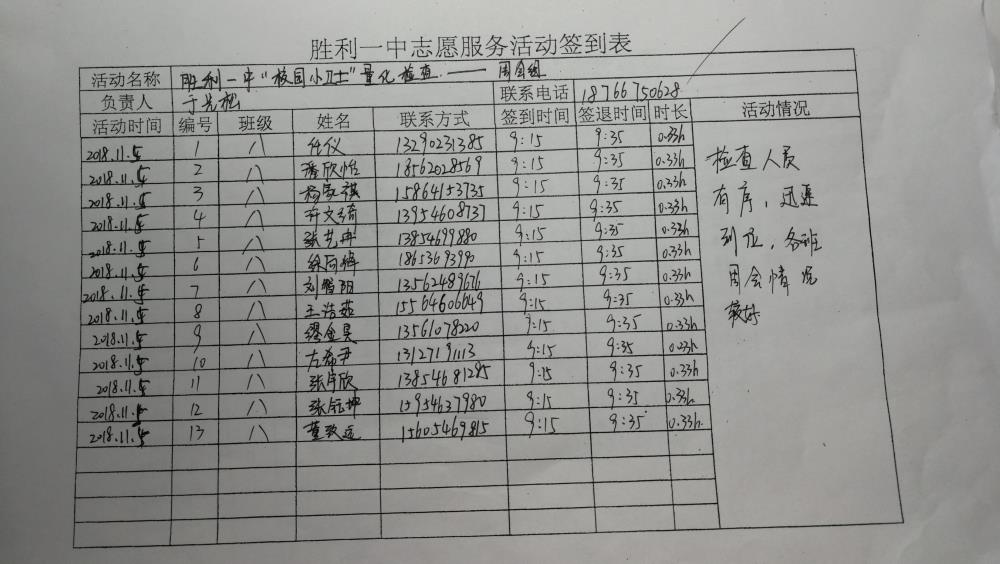 胜利一中志愿服务活动签到表
活动名称 胜利一中“校园小卫士”量化检查——周会组
负责人 于光松 联系电话 18766750628
活动时间 编号 班级 姓名 联系方式 签到时间 签退时间 时长 活动情况
2018.11.5 1 八 任仪 13290231385 9:15 9:35 0.33h
2018.11.5 2 八 潘欣怡 18562028569 9:15 9:35 0.33h
2018.11.5 3 八 杨家祺 15864153735 9:15 9:35 0.33h
2018.11.5 4 八 许文琦 13954608737 9:15 9:35 0.33h
2018.11.5 5 八 张艺冉 13854699880 9:15 9:35 0.33h
2018.11.5 6 八 9:15 9:35 0.33h
2018.11.5 7 八 刘 阳 13562489676 9:15 9:35 0.33h
2018.11.5 8 八 王浩茹 15564606649 9:15 9:35 0.33h
2018.11.5 9 八 缪金昊 13561078220 9:15 9:35 0.33h
2018.11.5 10 八 左希尹 13127191113 9:15 9:35 0.33h
2018.11.5 11 八 张卓欣 13854681285 9:15 9:35 0.33h
2018.11.5 12 八 张 坤 15954637980 9:15 9:35 0.33h
2018.11.5 13 八 董致远 15605469815 9:15 9:35 0.33h
检查人员
有序，迅速
到位，各班
周会情况
较好